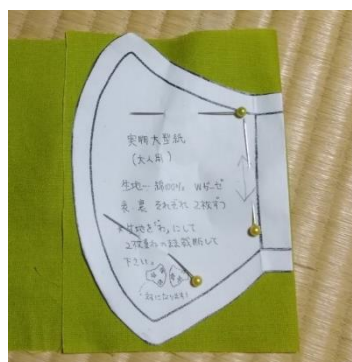 実物大型紙
(大人用)
生地〜綿100%, Wガーゼ
表・裏 それぞれ 2枚ずつ
生地を「わ」にして
2枚 裁断して
下さい。
になります